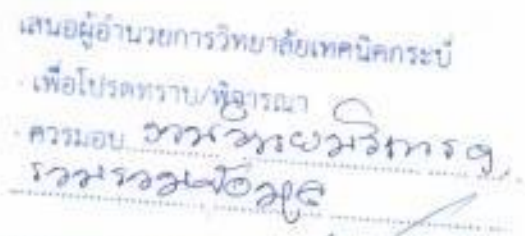 เสนอผู้อำนวยการวิทยาลัยเทคนิคกระบี่
- เพื่อโปรดทราบ/พิจารณา
- ควรมอบ
รวบรวมข้อมูล